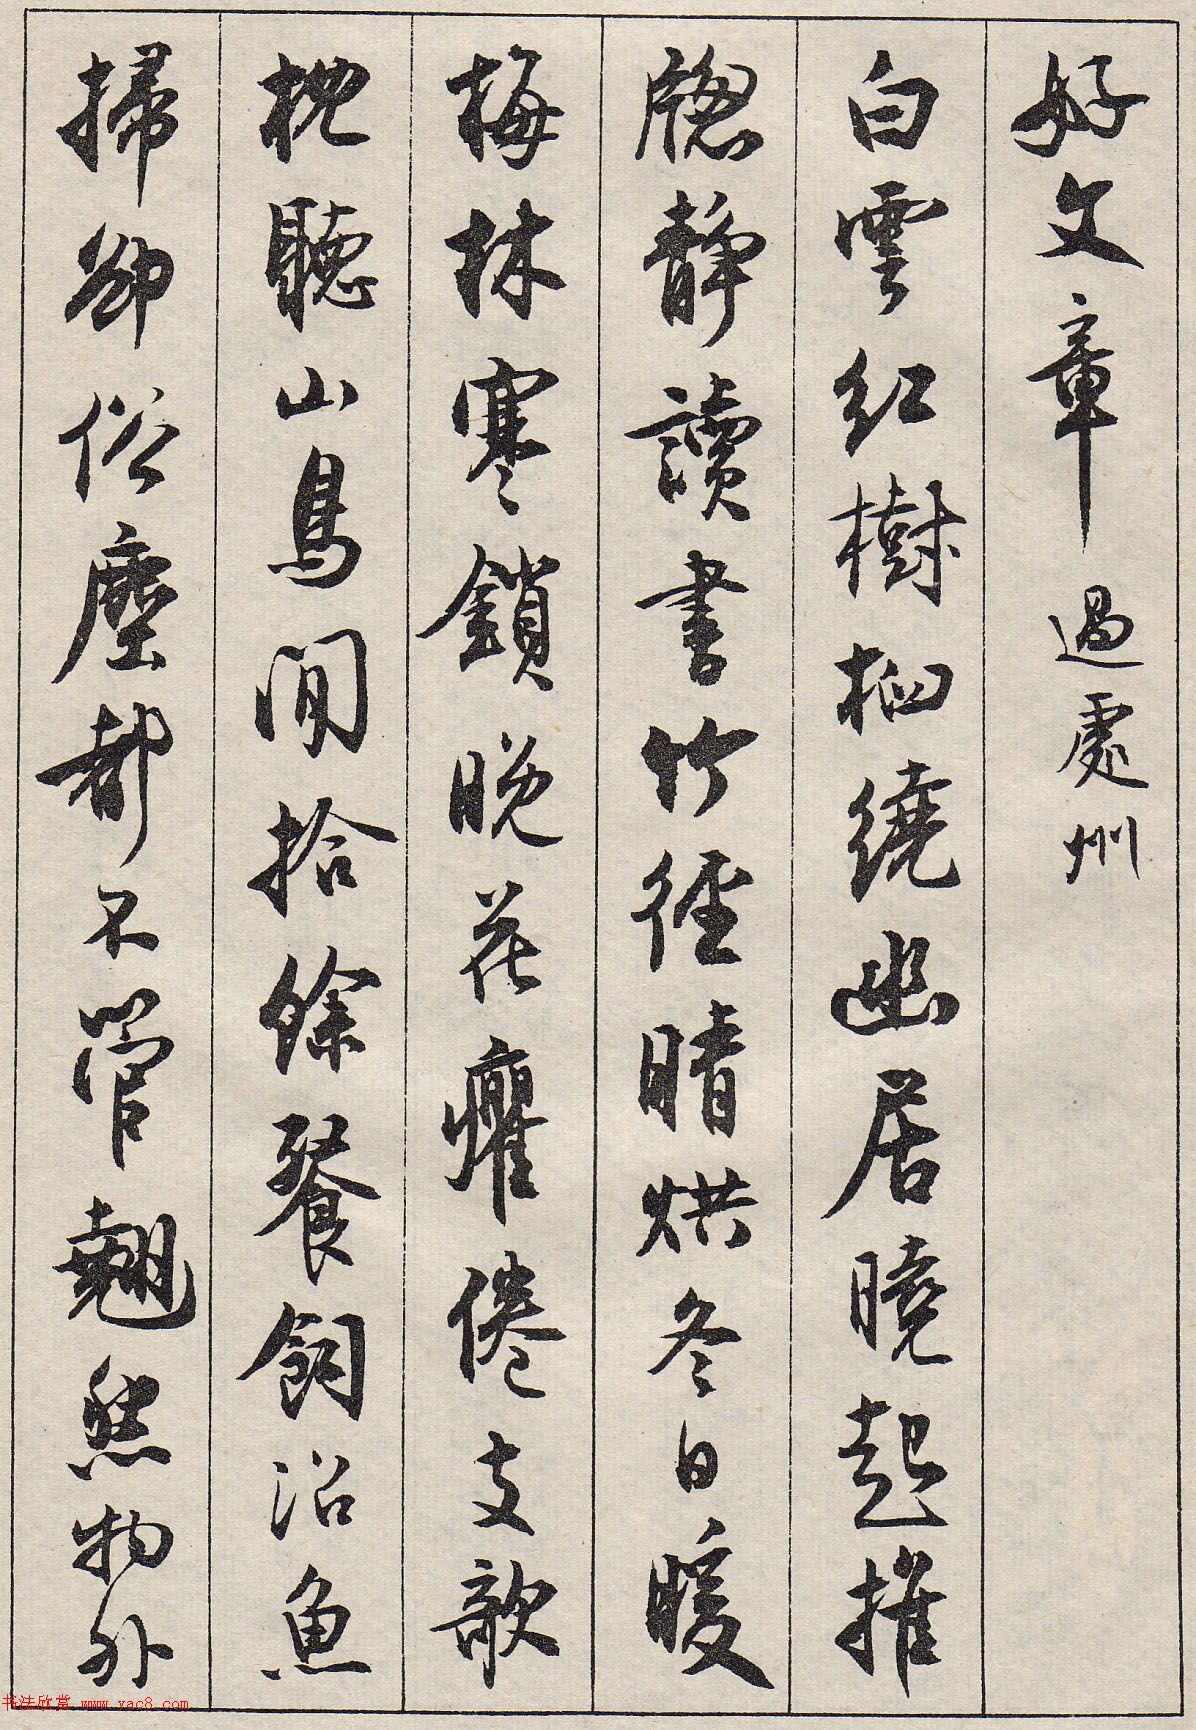 好文章 過處州
白雲紅樹栖繞幽居曉起推
牕靜讀書竹徑晴烘冬日暖
梅林寒鎖晚花癯倦支欹
枕聽山鳥閒拾餘餐飼沼魚
掃卻俗塵都不管翹然物外
书法欣赏 www.yac8.com